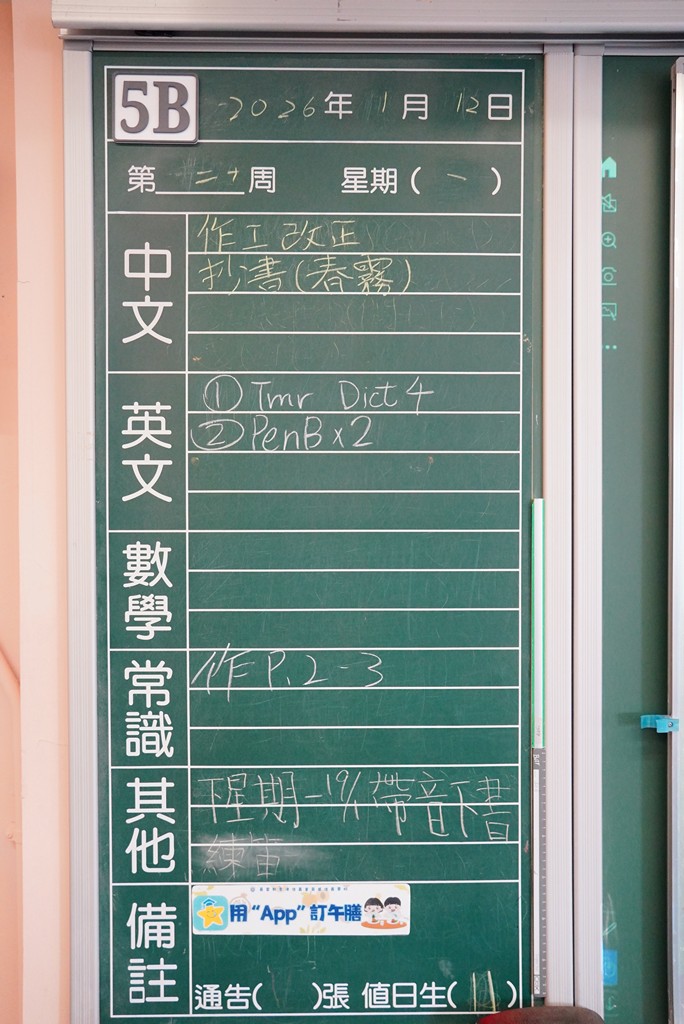 5B 2026年1月12日
第二十周 星期(一)
中文
作工改正
抄書(春霧)
英文
① Tmr Dict 4
② PenB x2
數學
常識
作 P. 2-3
其他
下星期一19/1帶音下書
練笛
備註
用“App”訂午膳
通告( )張 值日生( )